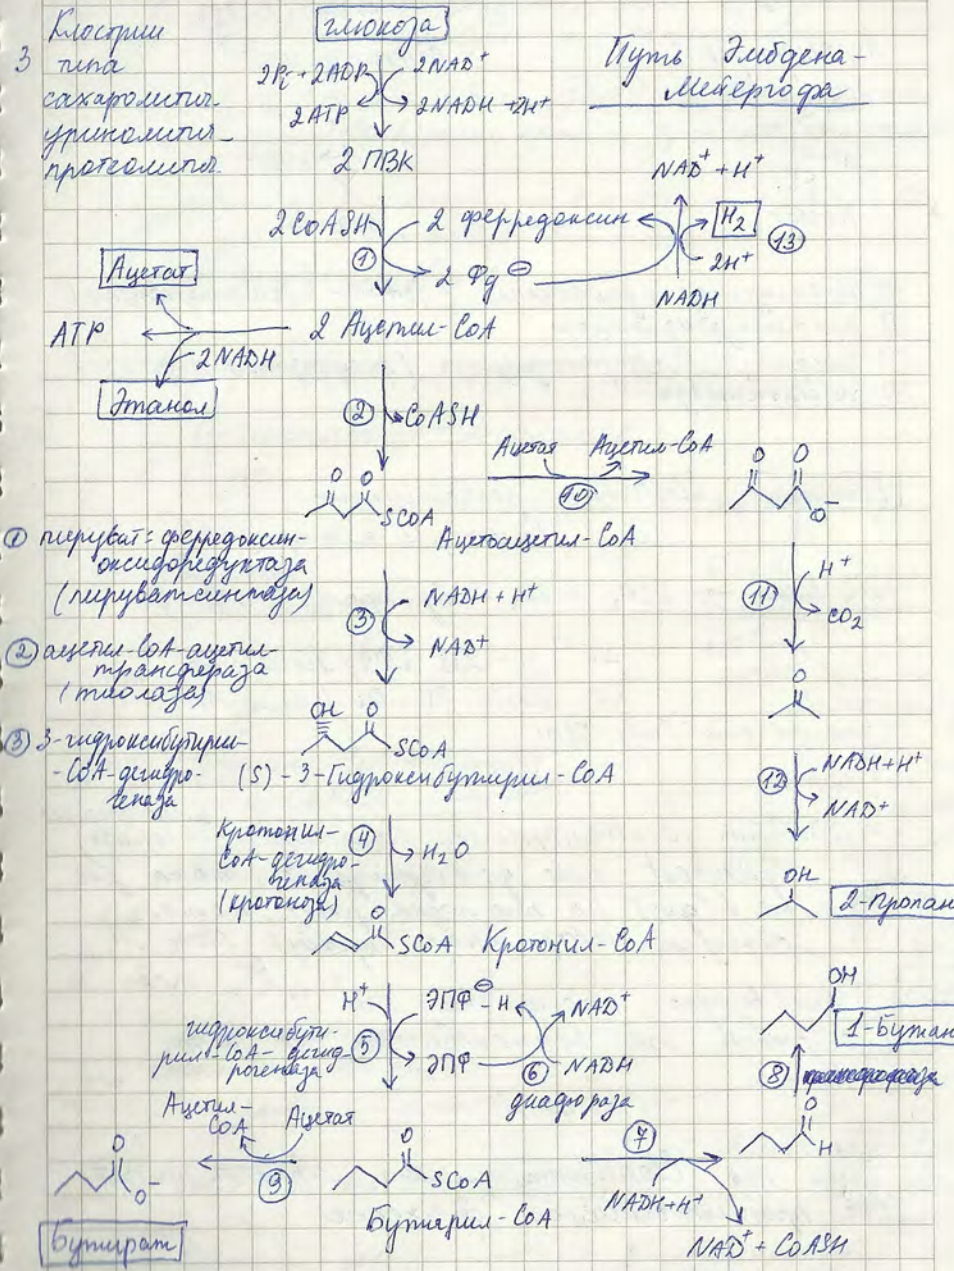 Клостридии
типа
сахаролитич.
уринолитич-
протеолитич.
3
глюкоза
Путь Эмбдена-
Мейергофа
2Pi + 2ADP
2NAD⁺
2ATP
2NADH + 2H⁺
2 ПВК
NAD⁺ + H⁺
2CoASH
2 ферредоксин
H₂
13
1
2 Фд ⊖
2H⁺
NADH
Ацетат
ATP
2 Ацетил-CoA
2NADH
Этанол
2
CoASH
Ацетат
Ацетил-CoA
10
O O
SCOA
O O
O⁻
Ацетоацетил-CoA
1 пируват:ферредоксин-
оксидоредуктаза
(пируватсинтаза)
3
NADH + H⁺
NAD⁺
11
H⁺
CO₂
2 ацетил-CoA-ацетил-
трансфераза
(тиолаза)
O
OH O
SCOA
3 3-гидроксибутирил-
-CoA-дегидро-
геназа
(S)-3-Гидроксибутирил-CoA
12
NADH+H⁺
NAD⁺
Кротонил-
CoA-дегидро-
геназа
(кротоназа)
4
H₂O
OH
2-Пропан
O
SCOA
Кротонил-CoA
H⁺
ЭПФ⊖-H
NAD⁺
OH
1-Бутан
гидроксибути-
рил-CoA-дегид-
рогеназа
5
ЭПФ
6
NADH
диафораза
8
Ацетил-
CoA
Ацетат
9
7
O
O⁻
O
SCOA
O
H
NADH+H⁺
Бутирил-CoA
NAD⁺ + CoASH
Бутират